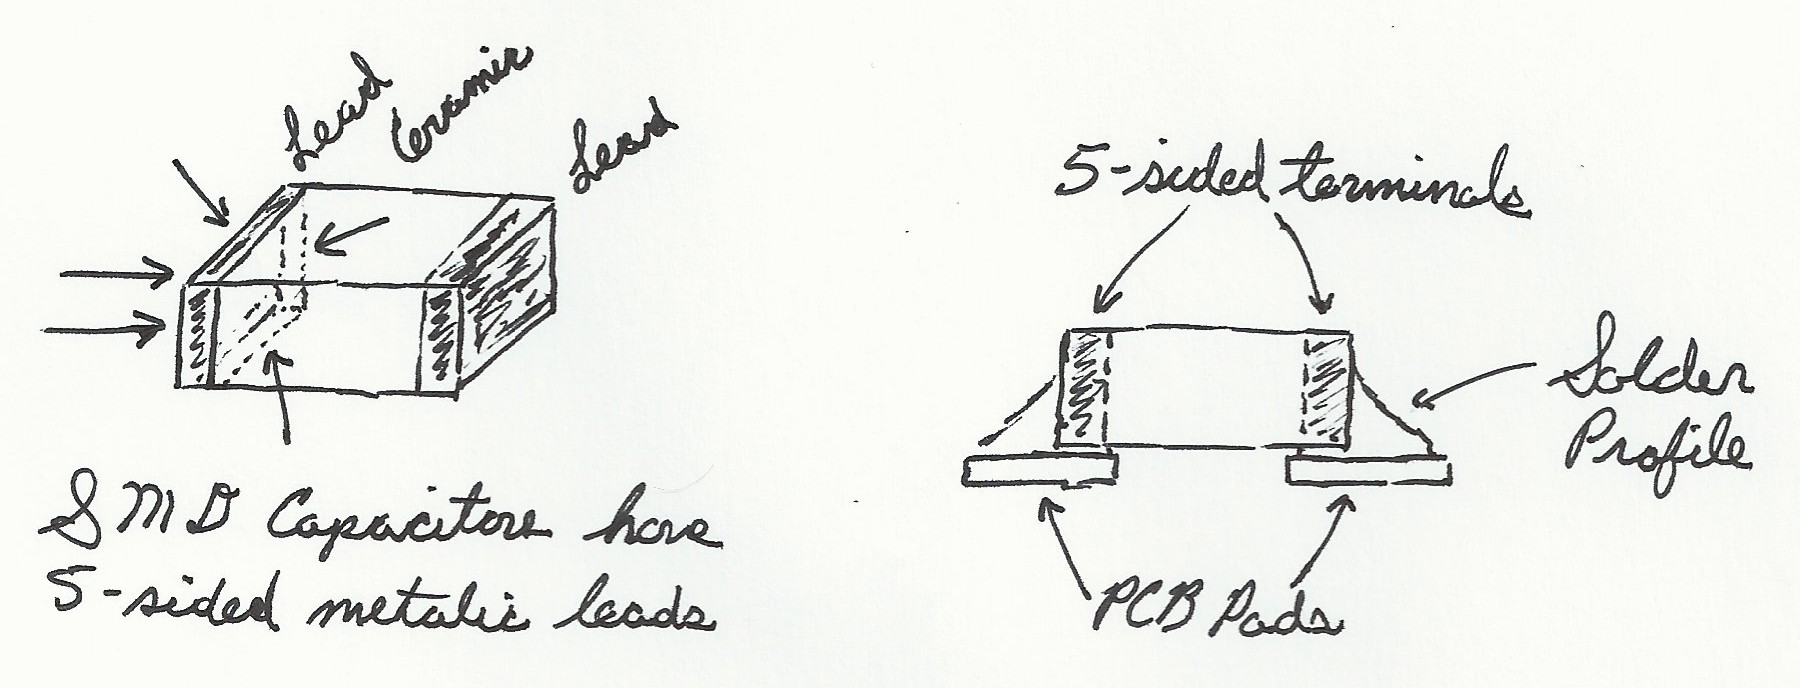 Lead
Ceramic
Lead
SMD Capacitors have
5-sided metalic leads
5-sided terminals
Solder
Profile
PCB Pads